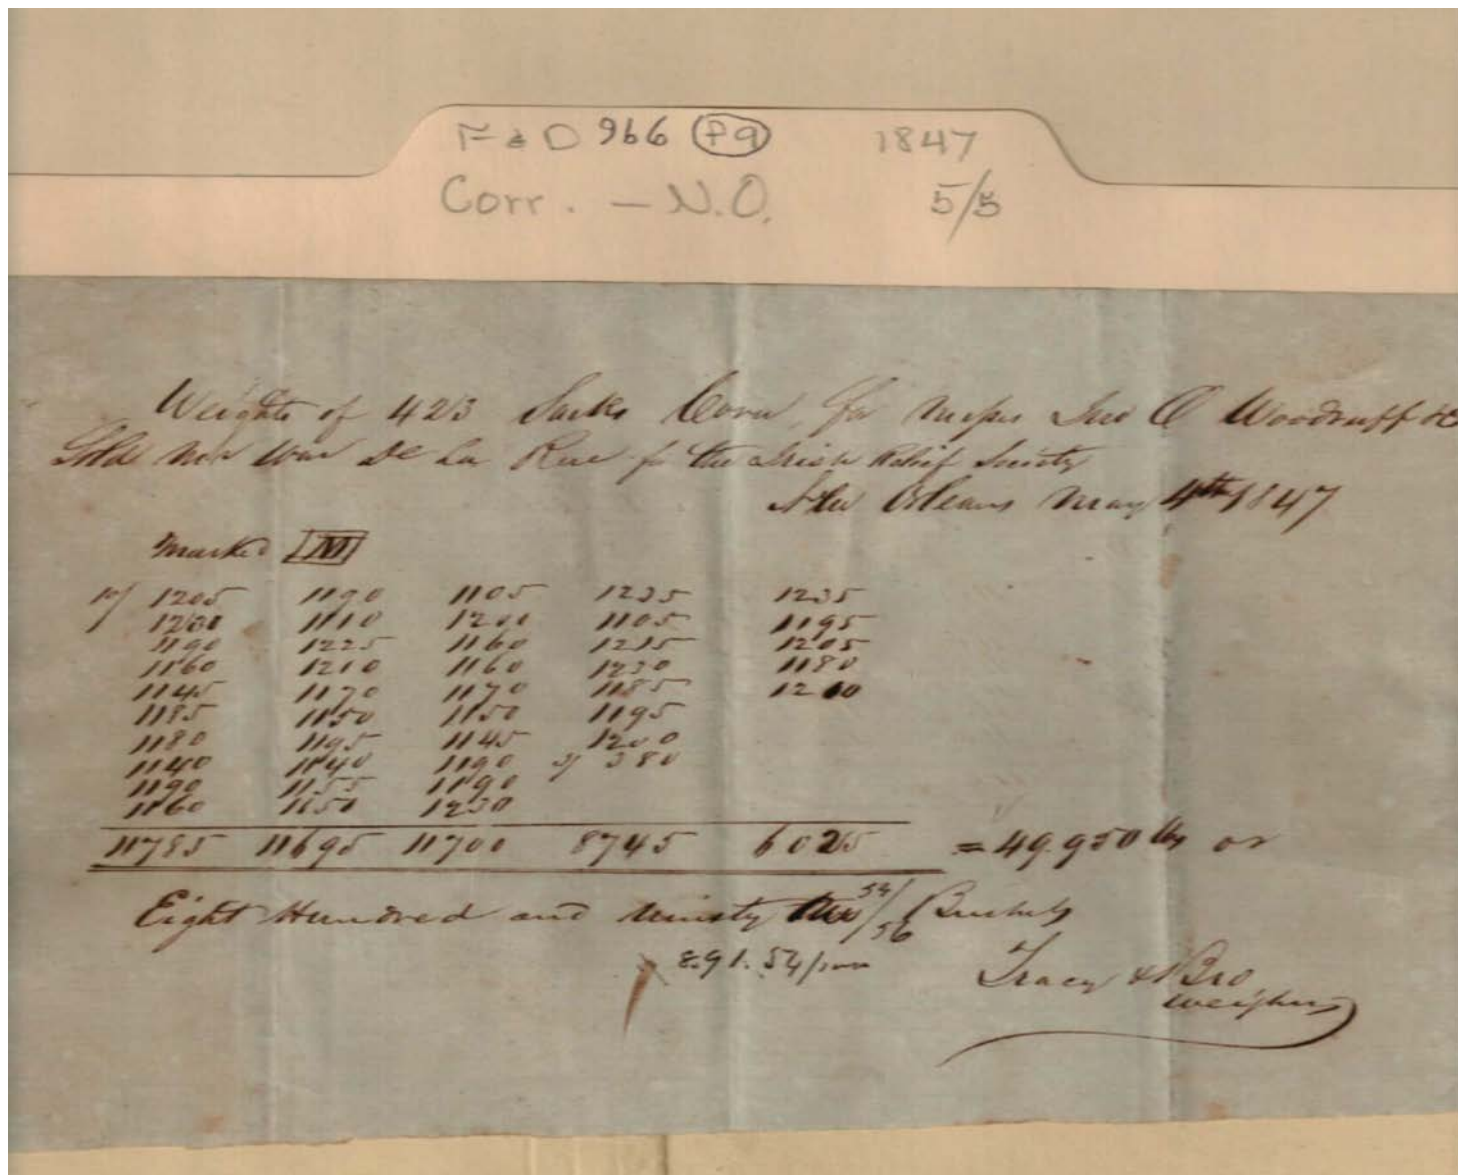 F & D 966 P9 1847
Corr. - N.O. 5/5
Weights of 423 Sacks Corn, for Messrs Jno O Woodruff & Co
Sold Mr War De La Rue for the Irish Relief Society
New Orleans May 4th 1847
Marked M
10/ 1205 1190 1105 1235 1235
1230 1110 1200 1105 1195
1190 1225 1160 1215 1205
1160 1210 1160 1230 1180
1145 1170 1170 1185 1210
1185 1150 1150 1195
1180 1195 1145 1200
1140 1140 1190 3/ 380
1190 1155 1190
1160 1150 1230
11785 11695 11700 8745 6025 = 49.950 lbs or
Eight Hundred and Ninety 54/56 Bushels
891.54/100
Tracy & Bro
Weighers